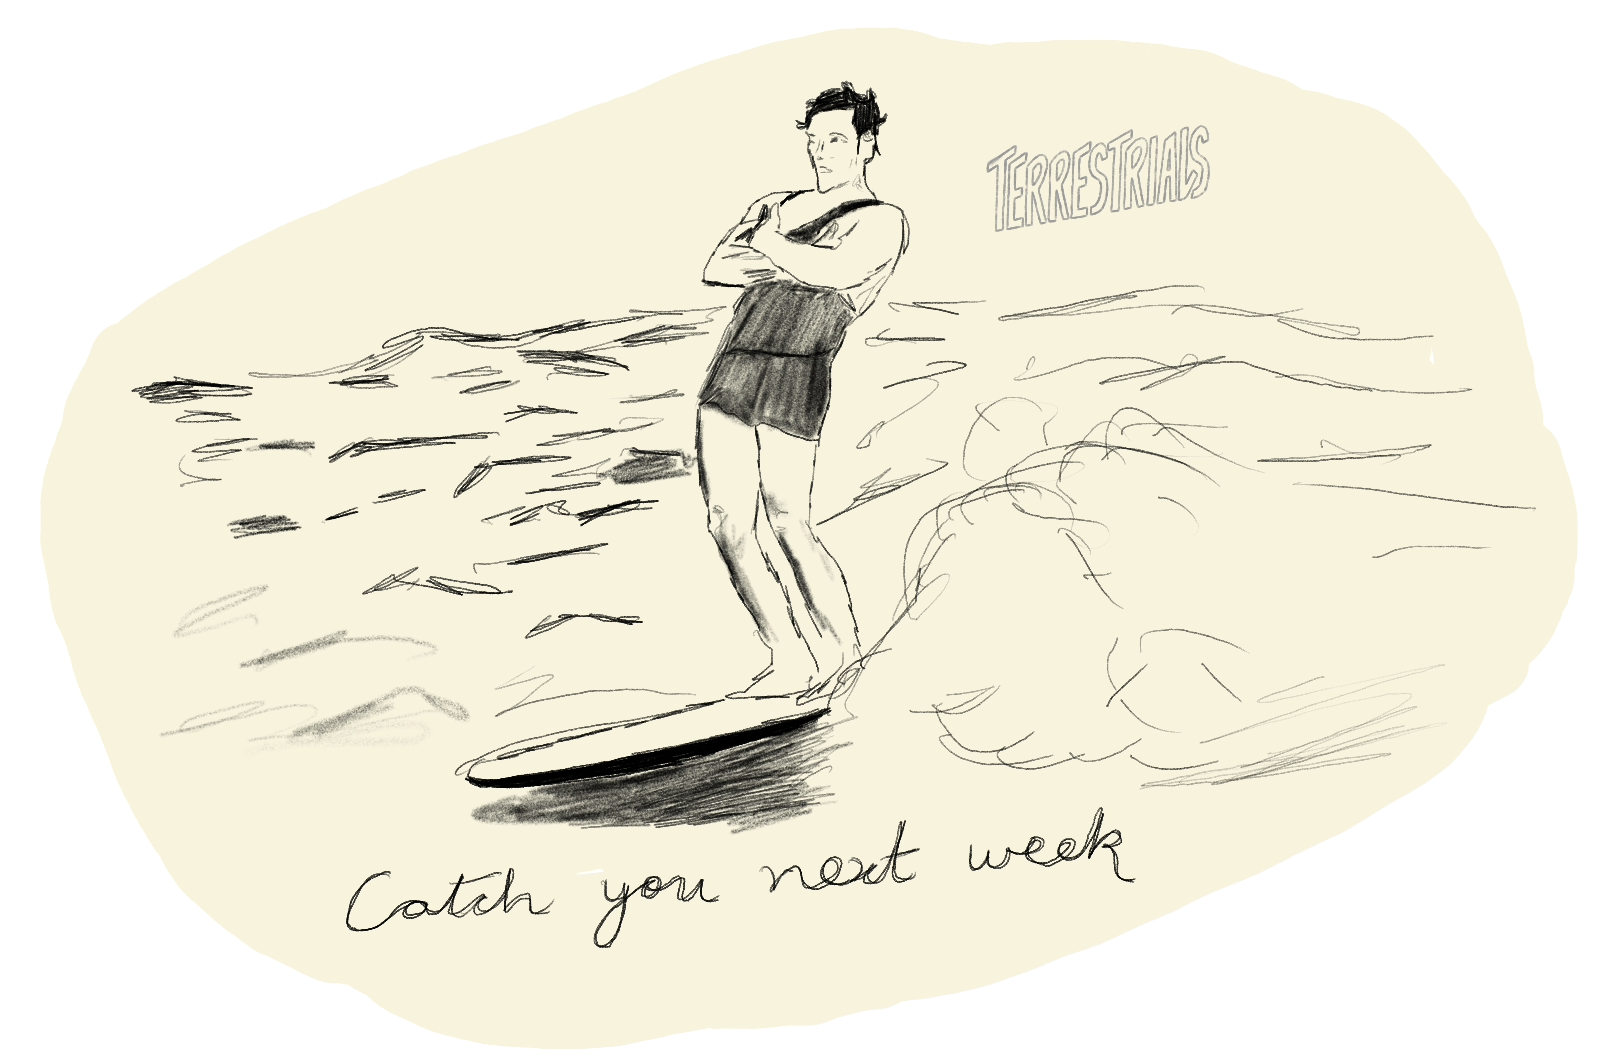 TERRESTRIALS
Catch you next week